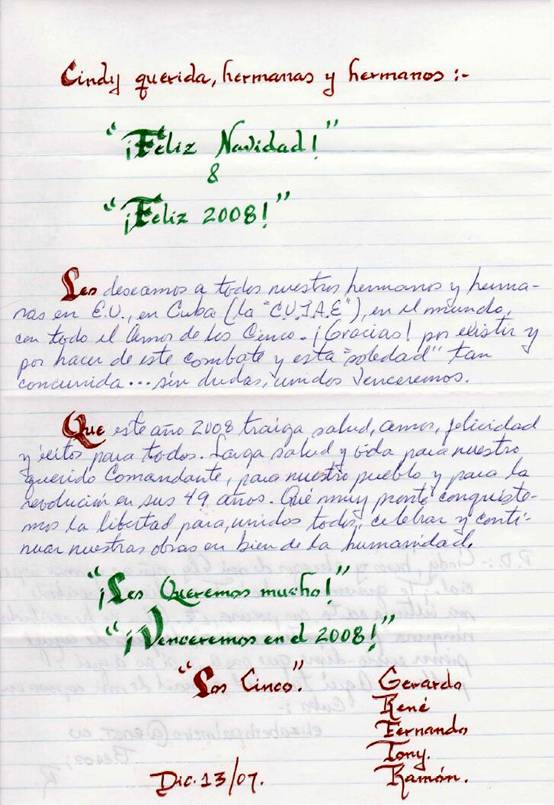 Cindy querida, hermanas y hermanos :-
"¡Feliz Navidad!"
&
"¡Feliz 2008!"
Les deseamos a todos nuestros hermanos y herma-
nas en E.U., en Cuba (la "CUJAE"), en el mundo,
con todo el Amor de los Cinco. ¡Gracias! por existir y
por hacer de este combate y esta "soledad" tan
concurrida... sin dudas, unidos Venceremos.
Que este año 2008 traiga salud, amor, felicidad
y éxitos para todos. Larga salud y vida para nuestro
querido Comandante, para nuestro pueblo y para la
revolución en sus 49 años. Qué muy pronto conquiste-
mos la libertad para, unidos todos, celebrar y conti-
nuar nuestras obras en bien de la humanidad.
"¡Les Queremos mucho!"
"¡Venceremos en el 2008!"
"Los Cinco."
Gerardo
René
Fernando
Tony.
Ramón.
Dic. 13/07.